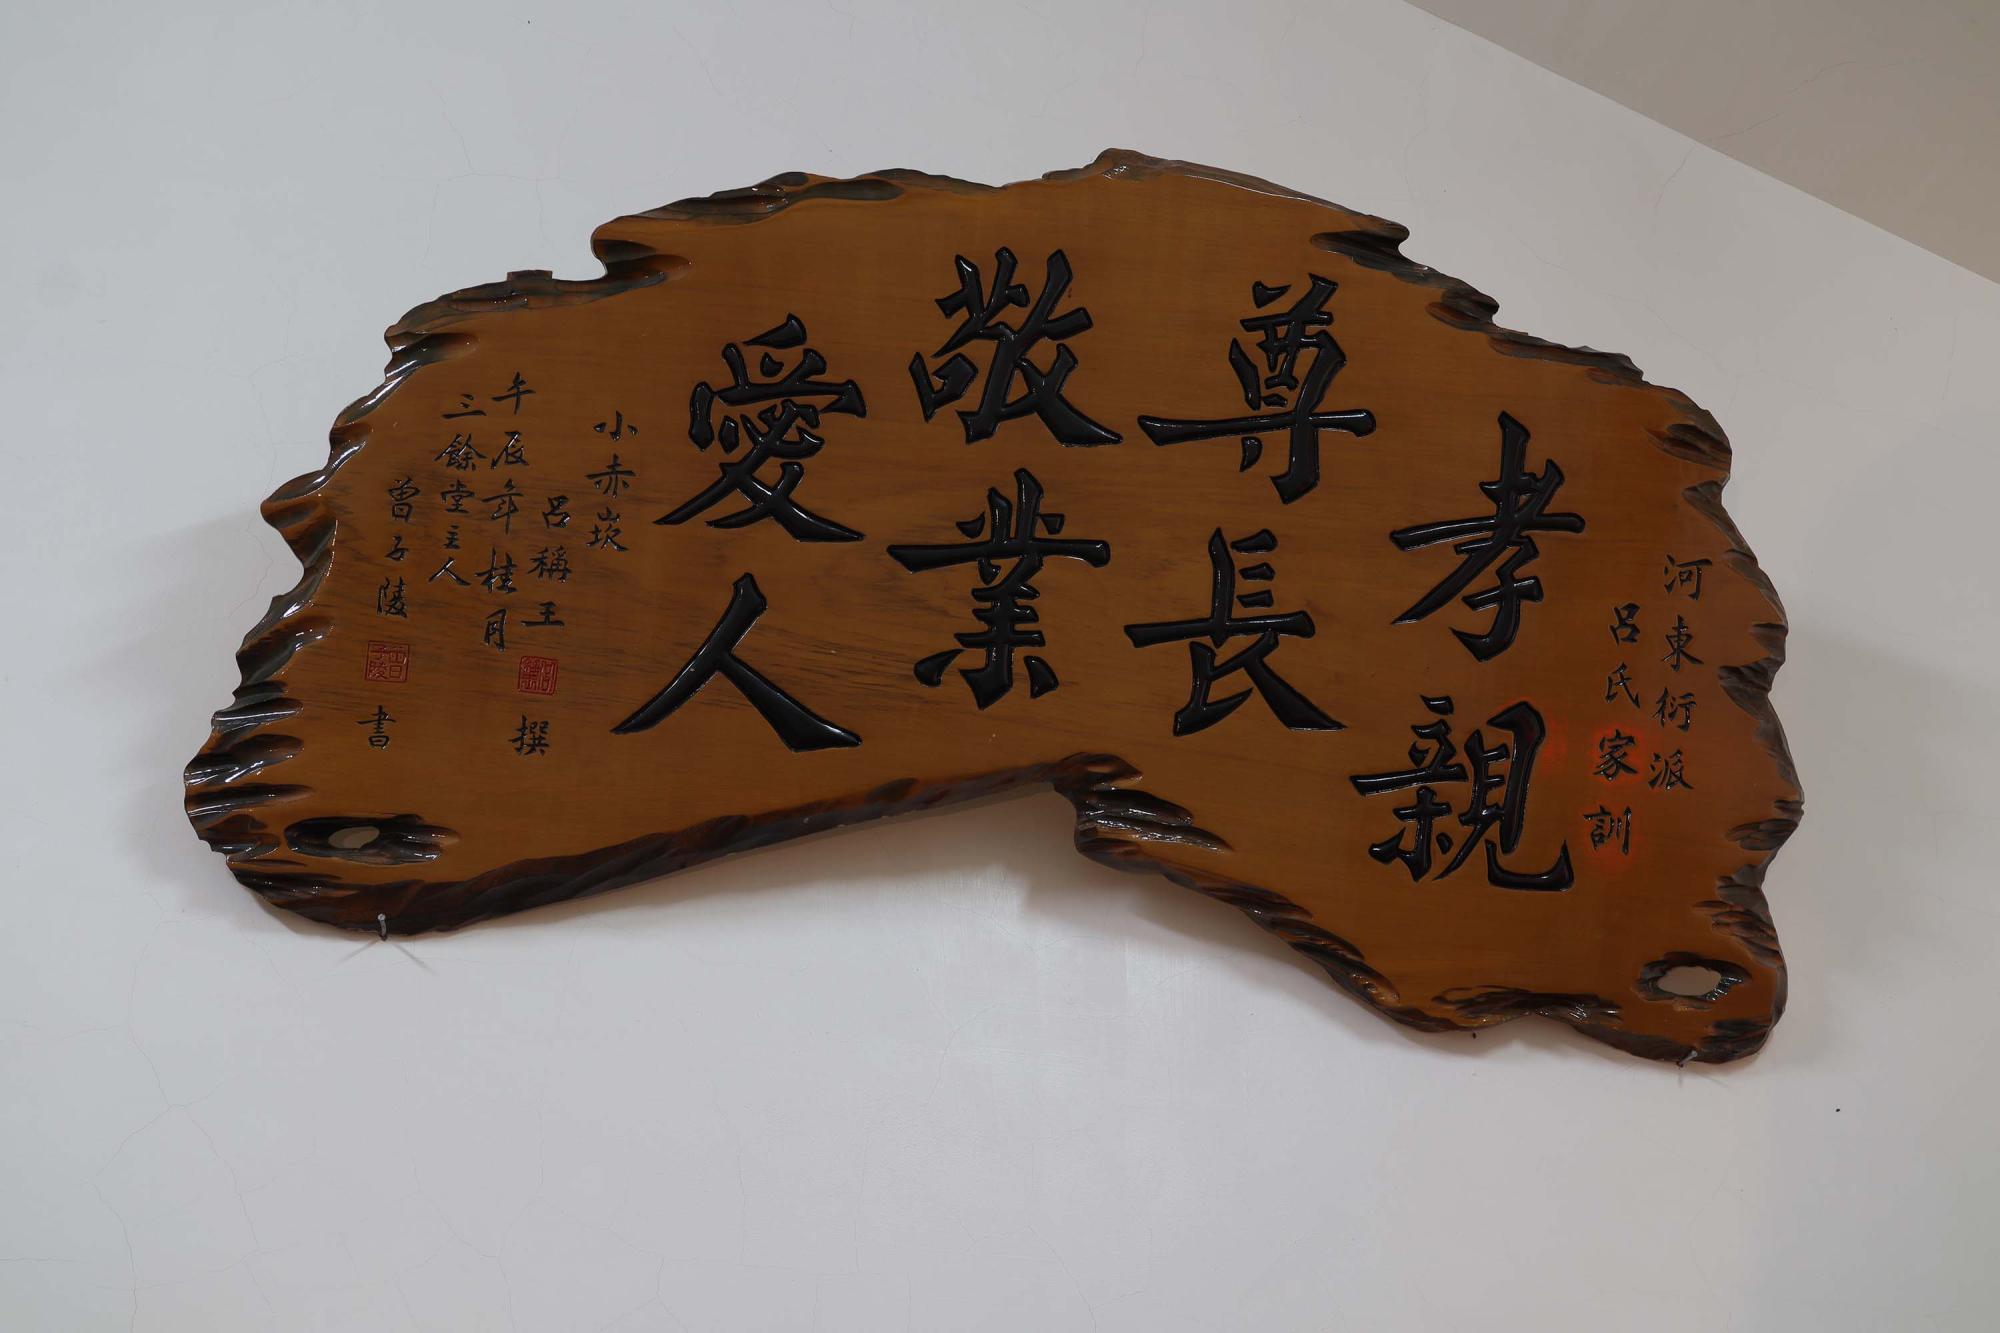 河東衍派
呂氏家訓
孝親
尊長
敬業
愛人
小赤崁
呂稱王
撰
午辰年桂月
三餘堂主人
曾子陵
書